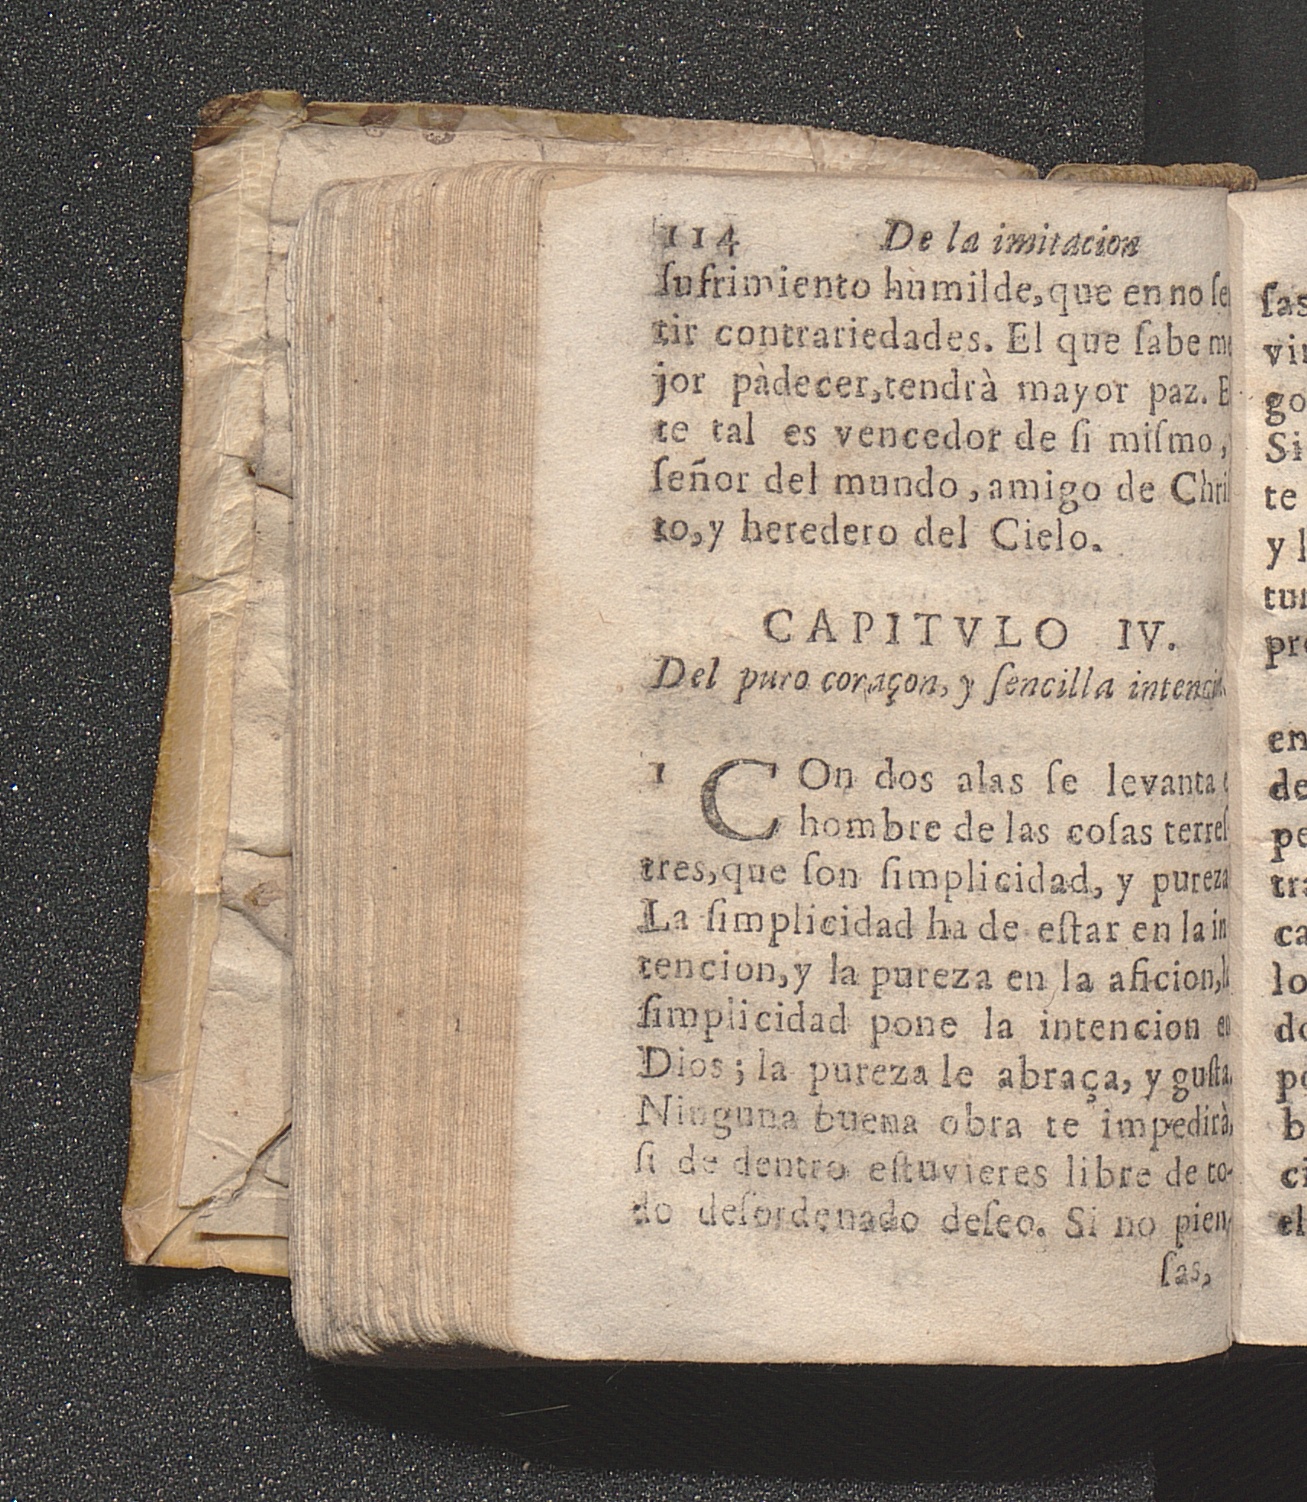 114 De la imitacion
ſufrimiento humilde, que en no ſe
tir contrariedades. El que ſabe me
jor pàdecer, tendrà mayor paz. E
te tal es vencedor de ſi miſmo,
ſeñor del mundo, amigo de Chriſ
to, y heredero del Cielo.
CAPITVLO IV.
Del puro coraçon, y ſencilla intenci
1 COn dos alas ſe levanta e
hombre de las coſas terreſ
tres, que ſon ſimplicidad, y pureza
La ſimplicidad ha de eſtar en la in
tencion, y la pureza en la aficion, l
ſimplicidad pone la intencion en
Dios; la pureza le abraça, y guſta.
Ninguna buena obra te impedirà,
ſi de dentro eſtuvieres libre de to-
do deſordenado deſeo. Si no pien-
ſas,
ſas
vir
go
Si
te
y l
tur
pro
en
de
pe
tra
ca
lo
do
po
b
ci
el